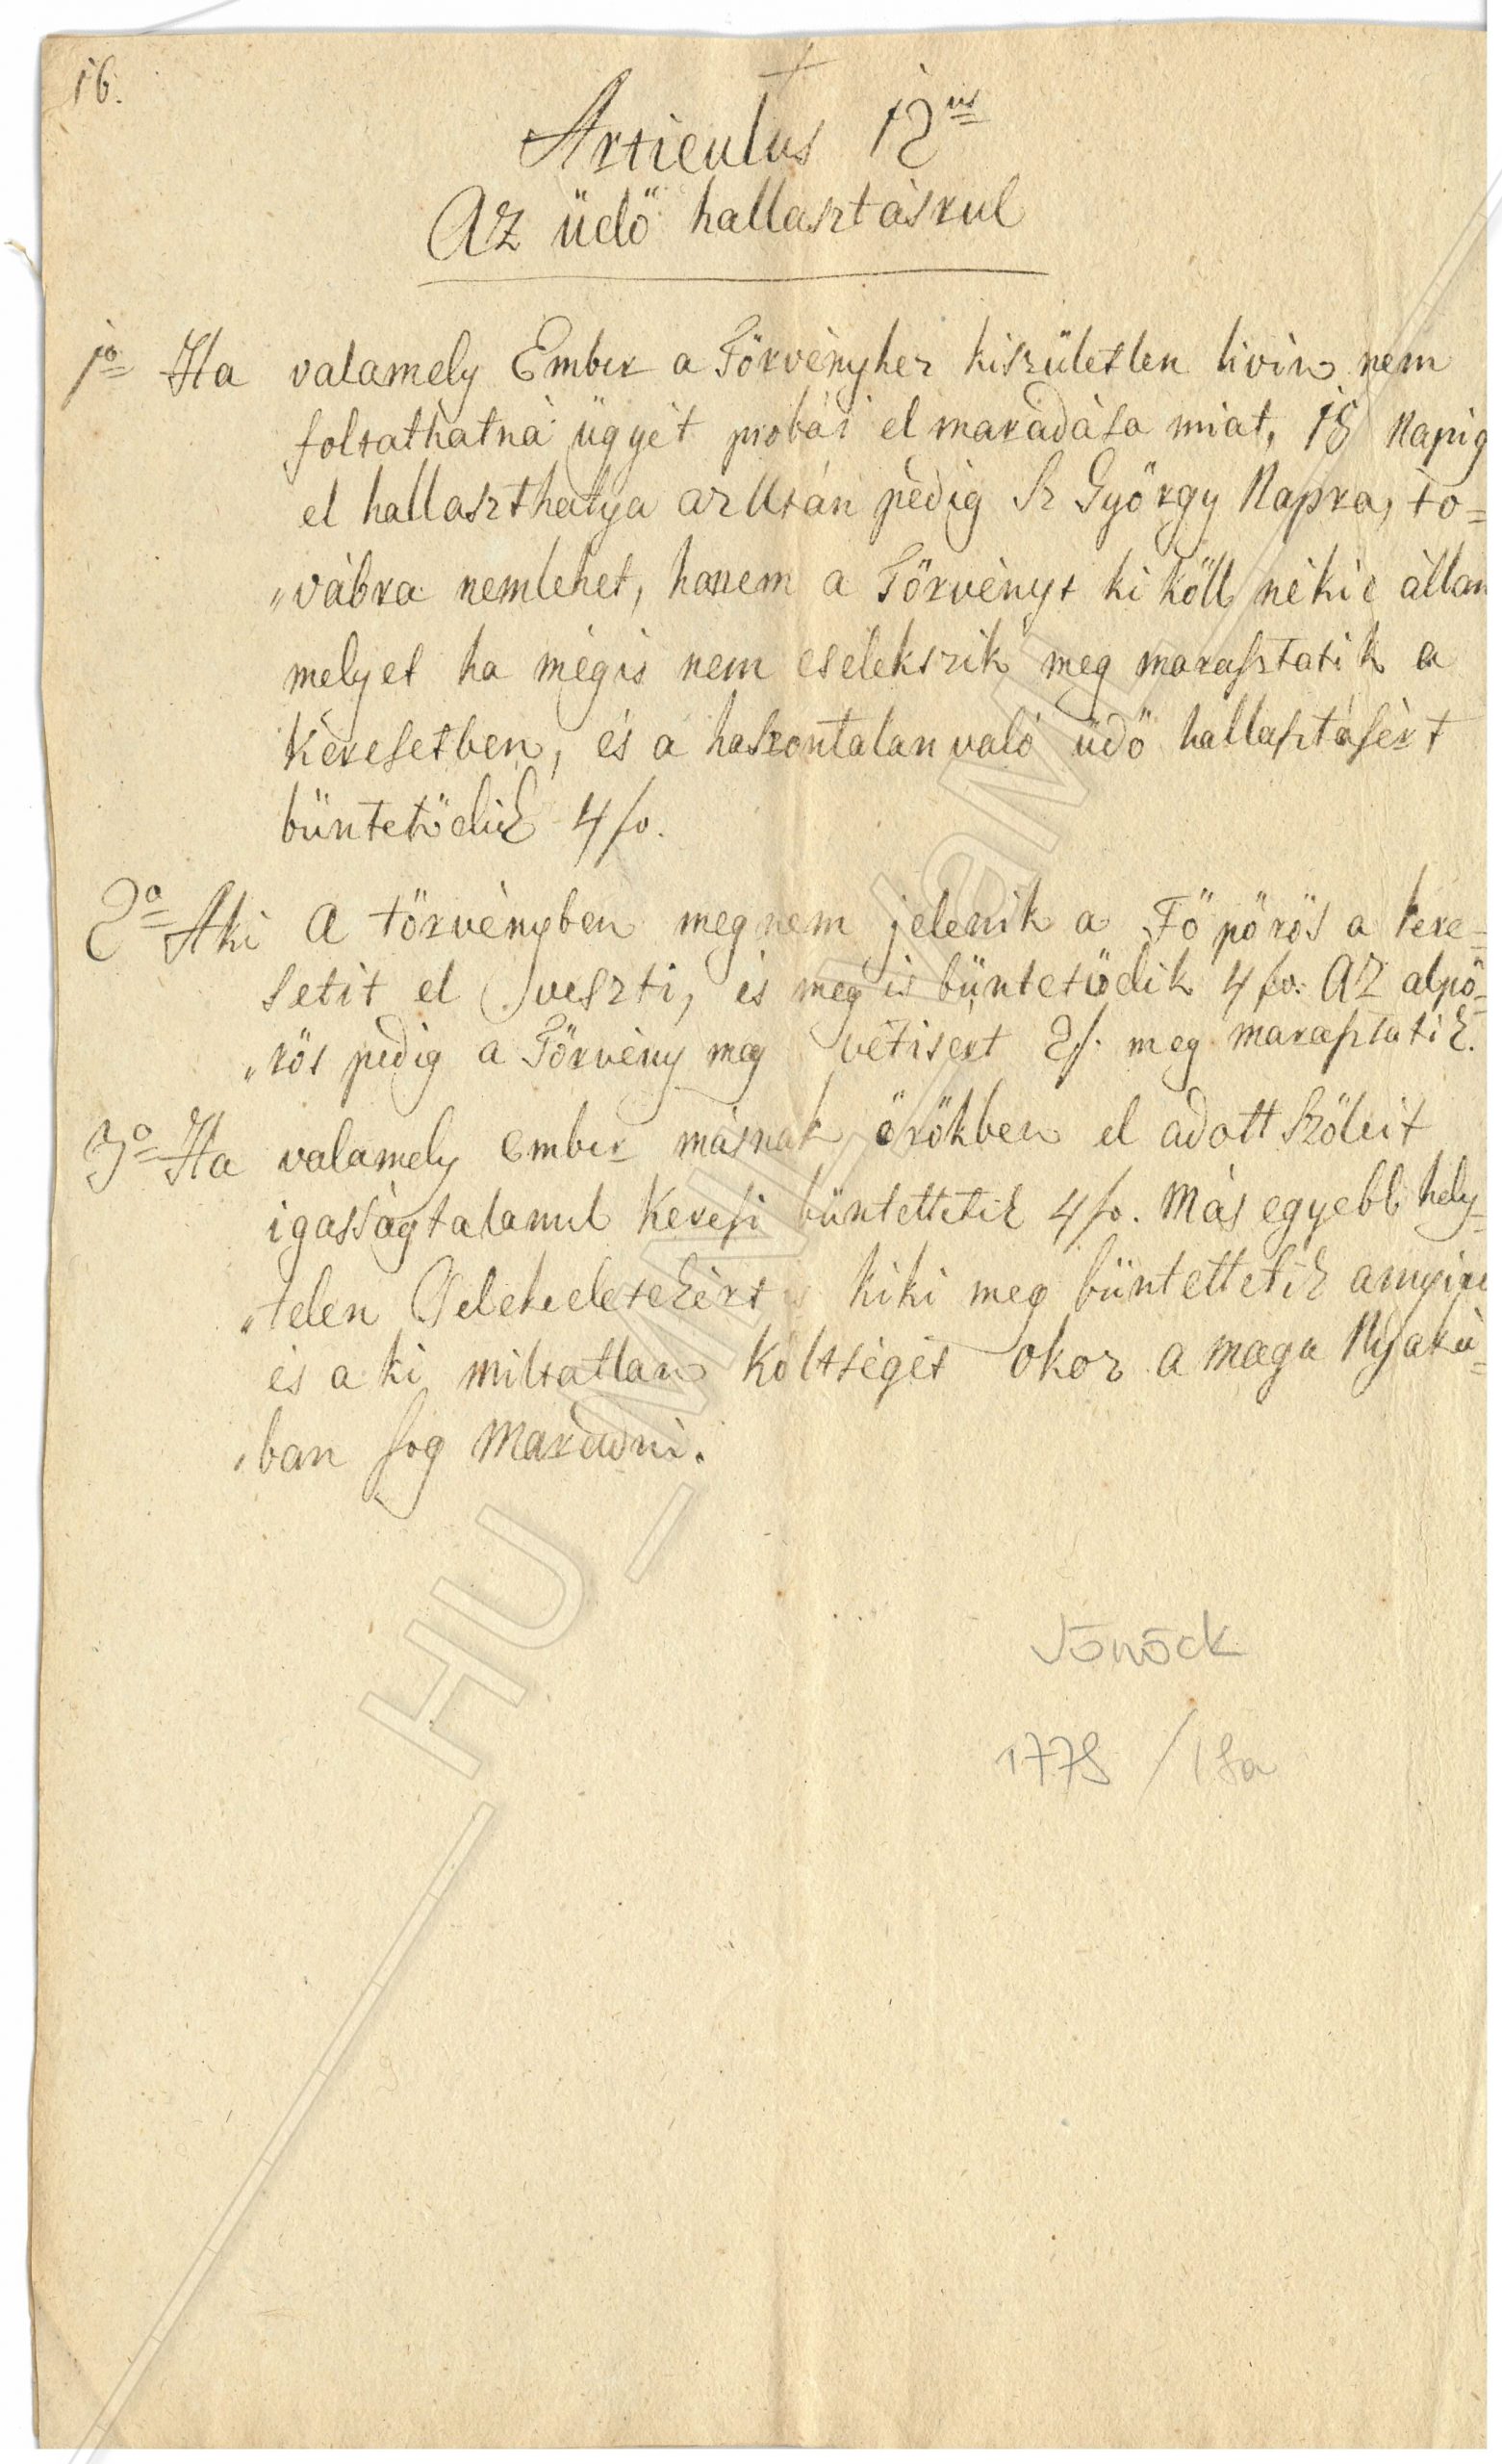 16.
Articulus 12us
Az üdö hallasztásrul
1o Ha valamely Ember a Törvényhez kiszületlen livin nem
folytathatná ügyét probái el maradása miat, 15 Napig
el hallaszthatya az Után pedig Sz György Napra, to=
„vábra nemlehet, hanem a Törvényt ki köll nékie állan
melyet ha mégis nem cselekszik meg marasztatik a
Keresetben, és a haszontalan való üdö hallasztásért
büntetödik 4 fo.
2o Aki a törvényben meg nem jelenik a Fö pörös a kere=
setit el veszti, és meg is büntetödik 4 fo. Az alpö=
„rös pedig a Törvény meg vetisért 2f. meg marasztatik.
3o Ha valamely ember másnak örökben el adott Szöleit
igasságtalanul Keresi büntettetik 4 fo. Más egyebb hely=
„telen Cselekedetekért is kiki meg büntettetik annyira
és a ki miltatlan Költséget okoz a maga Nyaká=
„ban fog Maradni.
Jönöck
1778 / 18a
HU_MNL_VaML